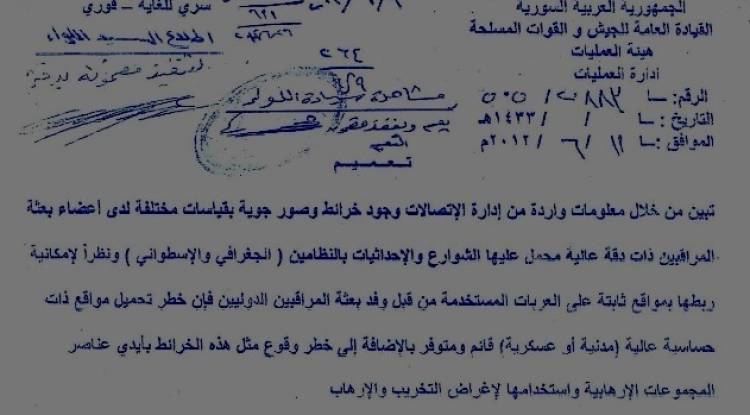 الجمهورية العربية السورية
القيادة العامة للجيش و القوات المسلحة
هيئة العمليات
إدارة العمليات
سري للغاية – فوري
اطلاع السيد اللواء
٦٢١
٢٦٤
الرقم: ٢٨٨٣ /
التاريخ: / / ١٤٣٣هـ
الموافق: / ٦ / ٢٠١٢م
تعميم
تبين من خلال معلومات واردة من إدارة الإتصالات وجود خرائط وصور جوية بقياسات مختلفة لدى أعضاء بعثة
المراقبين ذات دقة عالية محمل عليها الشوارع والإحداثيات بالنظامين ( الجغرافي والإسطواني ) ونظراً لإمكانية
ربطها بمواقع ثابتة على العربات المستخدمة من قبل وفد بعثة المراقبين الدوليين فإن خطر تحميل مواقع ذات
حساسية عالية (مدنية أو عسكرية) قائم ومتوفر بالإضافة إلى خطر وقوع مثل هذه الخرائط بأيدي عناصر
المجموعات الإرهابية واستخدامها لإغراض التخريب والإرهاب